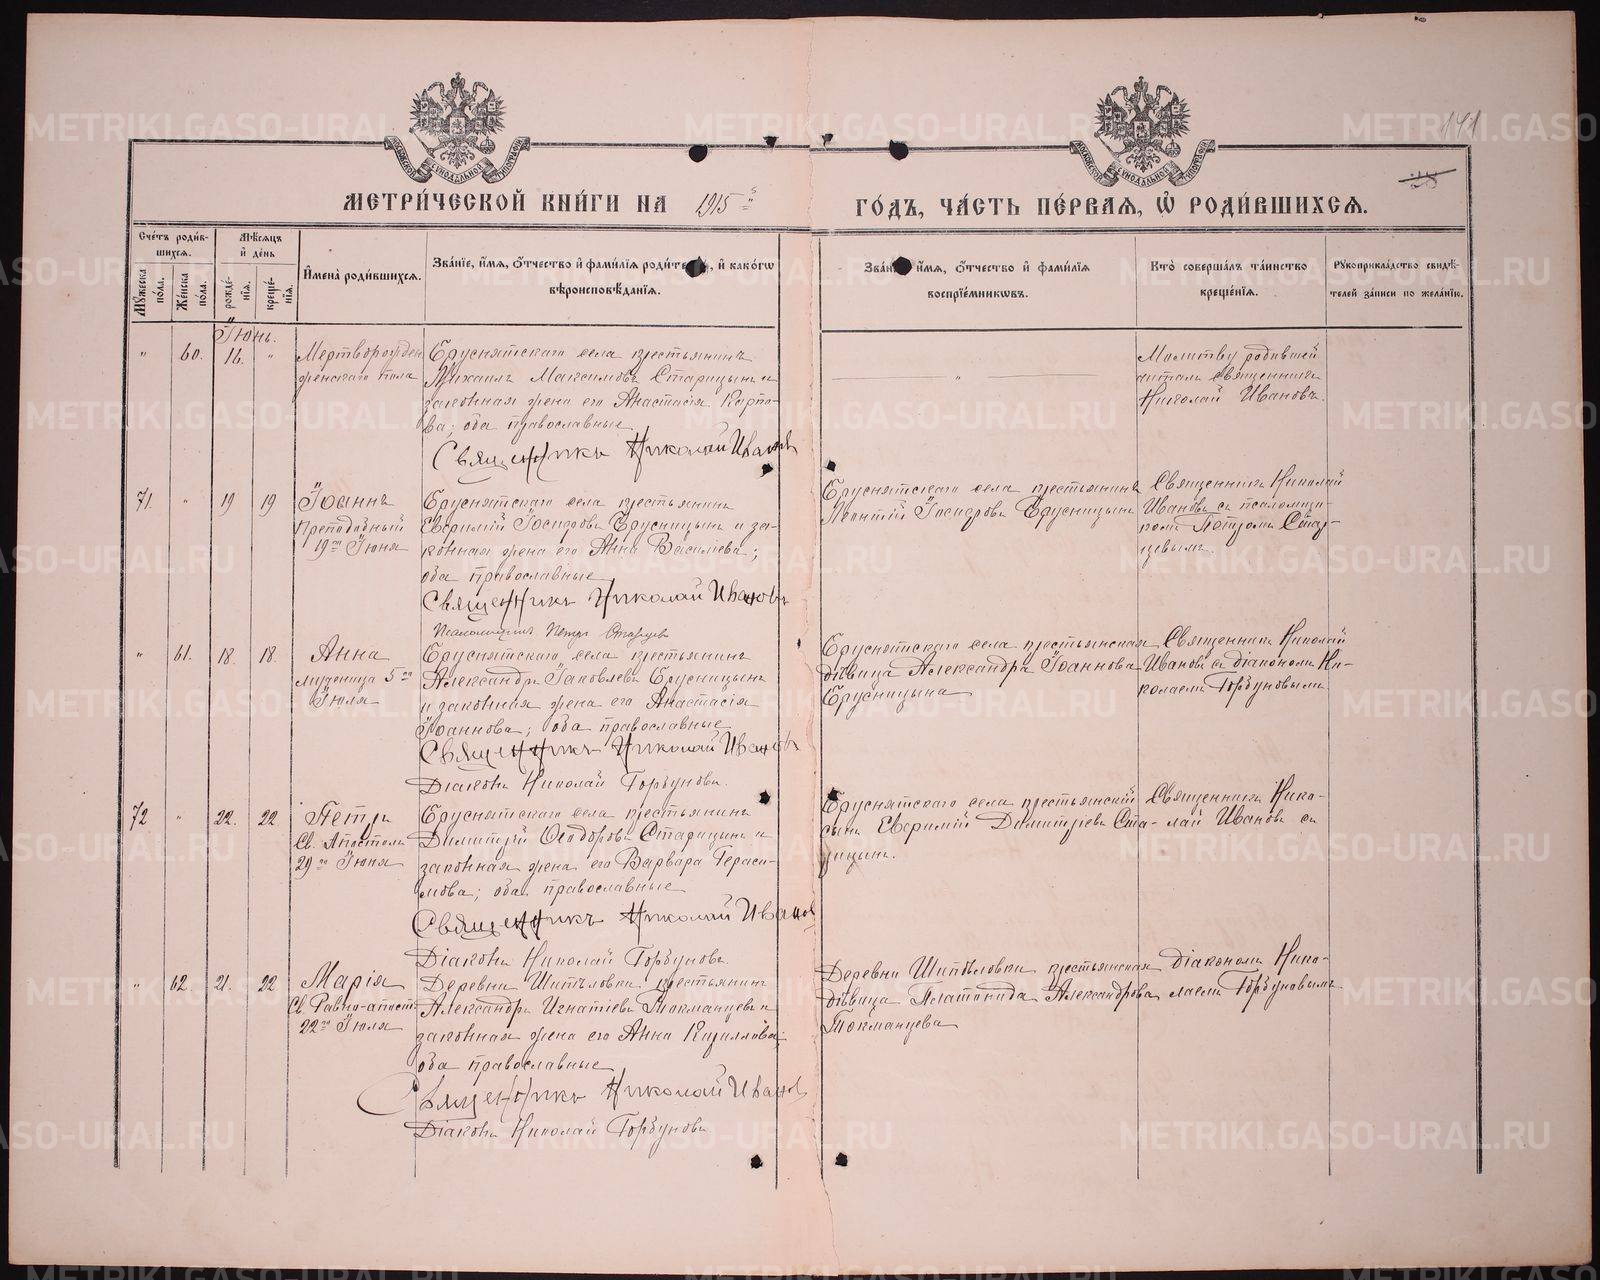 METRIKI.GASO-URAL.RU
141
МОСКОВСКОЙ СѴНОДАЛЬНОЕ ТИПОГРАФІИ
МЕТРИ́ЧЕСКОЙ КНИ́ГИ НА 1915 й
ГО́ДЪ, ЧА́СТЬ ПЕ́РВАЯ, Ѡ РОДИ́ВШИХСЯ.
Сче́тъ роди́в-
шихся.
Мꙋ́жеска по́ла.
Же́нска по́ла.
Мѣ́сяцъ и҆ де́нь
рожде́-
нїѧ.
креще́-
нїѧ.
И҆мена̀ роди́вшихся.
Зва́нїе, и҆́мѧ, ѻ҆́тчество и҆ фами́лїѧ роди́телей, и҆ како́гѡ
вѣроисповѣ́данїѧ.
Зва́нїе, и҆́мѧ, ѻ҆́тчество и҆ фами́лїѧ
воспрїе́мникѡвъ.
Кто̀ соверша́лъ та́инство
креще́нїѧ.
Рꙋкоприкла́дство свидѣ́-
телей за́писи по жела́нїю.
Іюнь.
" 60. 16. "
Мертворожден
женскаго пола
Бруснятскаго села крестьянинъ
Михаилъ Максимовъ Старицынъ и
законная жена его Анастасія Карпо-
ва; оба православные
Священникъ Николай Ивановъ
"
Молитву родившей
читалъ Священникъ
Николай Ивановъ.
71. " 19 19
Іоаннъ
Преподобный
19го Іюня
Бруснятскаго села крестьянинъ
Евфимій Іосифовъ Брусницынъ и за-
конная жена его Анна Васильева;
оба православные
Священникъ Николай Ивановъ
Псаломщикъ Петръ Старцев
Бруснятскаго села крестьянинъ
Леонтій Іосифовъ Брусницынъ
Священникъ Николай
Ивановъ съ псаломщи-
комъ Петромъ Стар-
цевымъ.
" 61. 18. 18.
Анна
мученица 5го
Іюля
Бруснятскаго села крестьянинъ
Александръ Іаковлевъ Брусницынъ
и законная жена его Анастасія
Іоаннова; оба православные
Священникъ Николай Ивановъ
Діаконъ Николай Горбуновъ.
Бруснятскаго села крестьянская
дѣвица Александра Іоаннова
Брусницына
Священникъ Николай
Ивановъ съ діакономъ Ни-
колаемъ Горбуновымъ
72 " 22. 22
Петръ
Св. Апостолъ
29го Іюня
Бруснятскаго села крестьянинъ
Димитрій Ѳеодоровъ Старицынъ и
законная жена его Варвара Гераси-
мова; оба православные
Священникъ Николай Ивановъ
Діаконъ Николай Горбуновъ.
Бруснятскаго села крестьянскій
сынъ Евфимій Димитріевъ Ста-
рицынъ.
Священникъ Нико-
лай Ивановъ съ
" 62. 21. 22
Марія
Св. Равно-апост.
22го Іюля
Деревни Шипѣловки крестьянинъ
Александръ Игнатіевъ Токманцевъ и
законная жена его Анна Кириллова;
оба православные
Священникъ Николай Ивановъ
Діаконъ Николай Горбуновъ
Деревни Шипѣловки крестьянская
дѣвица Платонида Александрова
Токманцева
діакономъ Нико-
лаемъ Горбуновымъ